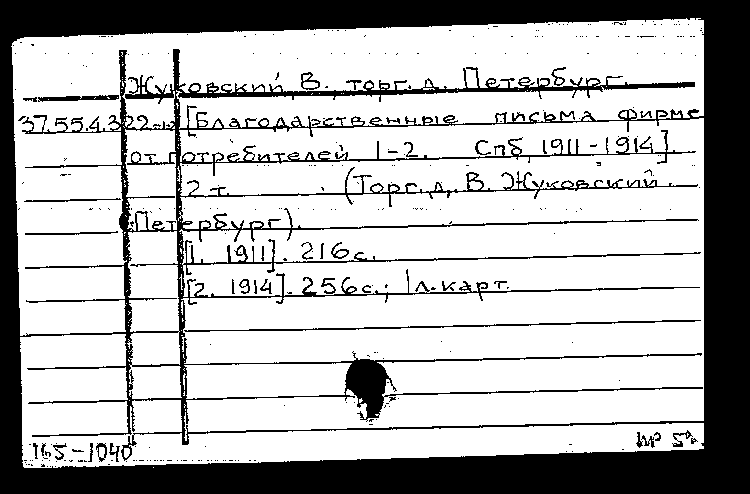 Жуковский, В., торг. д. Петербург.
37.55.4.322-ю [Благодарственные письма фирме
от потребителей 1-2. Спб, 1911-1914].
2 т. (Торг. д. В. Жуковский.
Петербург).
[1. 1911]. 216 с.
[2. 1914]. 256 с.; 1 л. карт.
165-1040